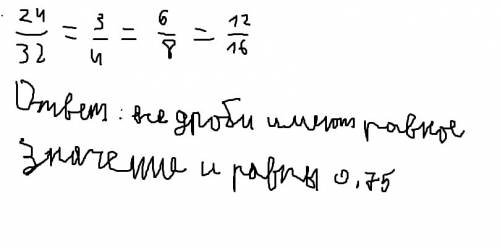 24/32 = 3/4 = 6/8 = 12/16
Ответ: все дроби имеют равное
значение и равны 0,75